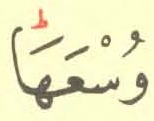 وُسْعَهَاۖ